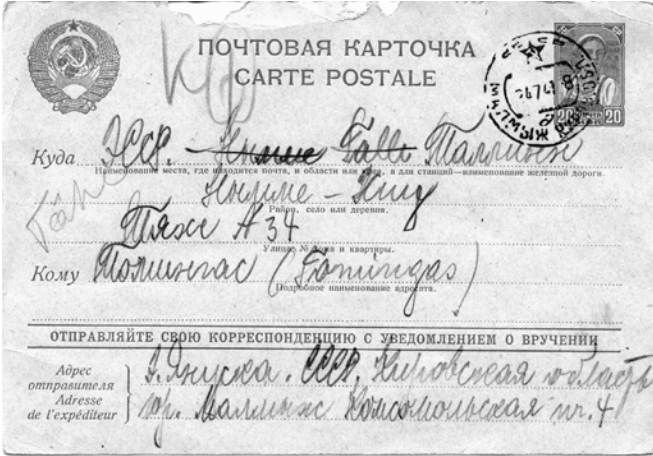 ПОЧТОВАЯ КАРТОЧКА
CARTE POSTALE
20 20
Куда ЭССР. Нымме Таллинн
Наименование места, где находится почта, и области или края, а для станций—наименование железной дороги.
Нымме – Хиу
Район, село или деревня.
Тяхе А 34
Улица, № дома и квартиры.
Кому Томингас (Tomingas)
Подробное наименование адресата.
ОТПРАВЛЯЙТЕ СВОЮ КОРРЕСПОНДЕНЦИЮ С УВЕДОМЛЕНИЕМ О ВРУЧЕНИИ
Адрес отправителя
Adresse de l'expéditeur
Януска. СССР, Кировская область
гор. Малмыж Комсомольская 4